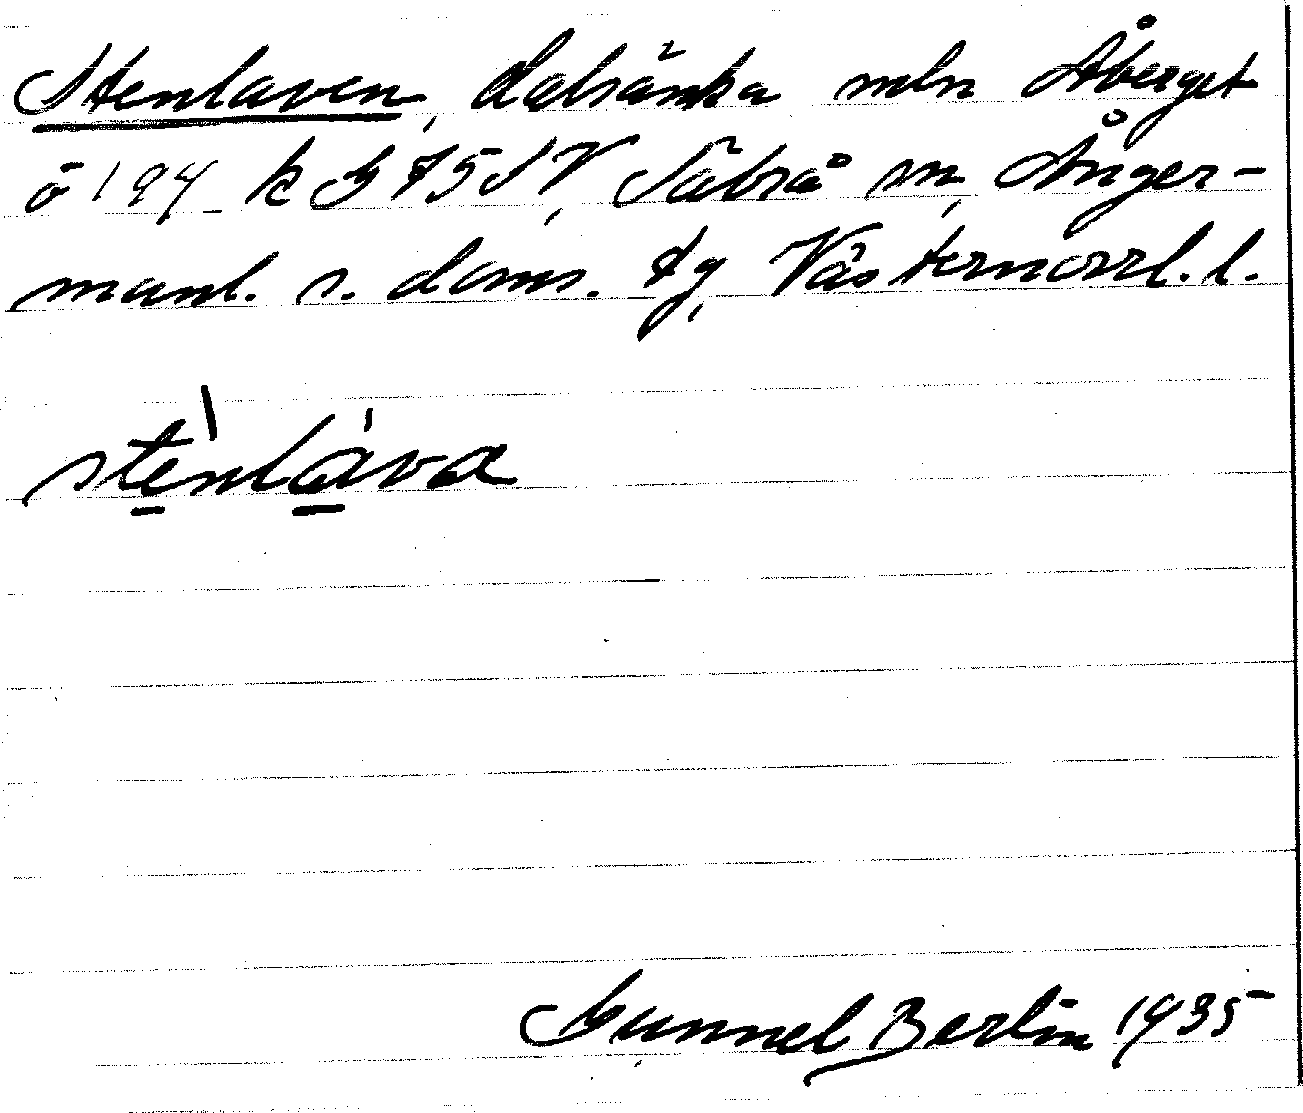 Stenlaven, dalsänka mln Åberget
o 194 k G 75 SV, Säbrå sn, Ånger-
manl. s. doms. tg, Västernorrl. l.
stènláva
Gunnel Berlin 1935